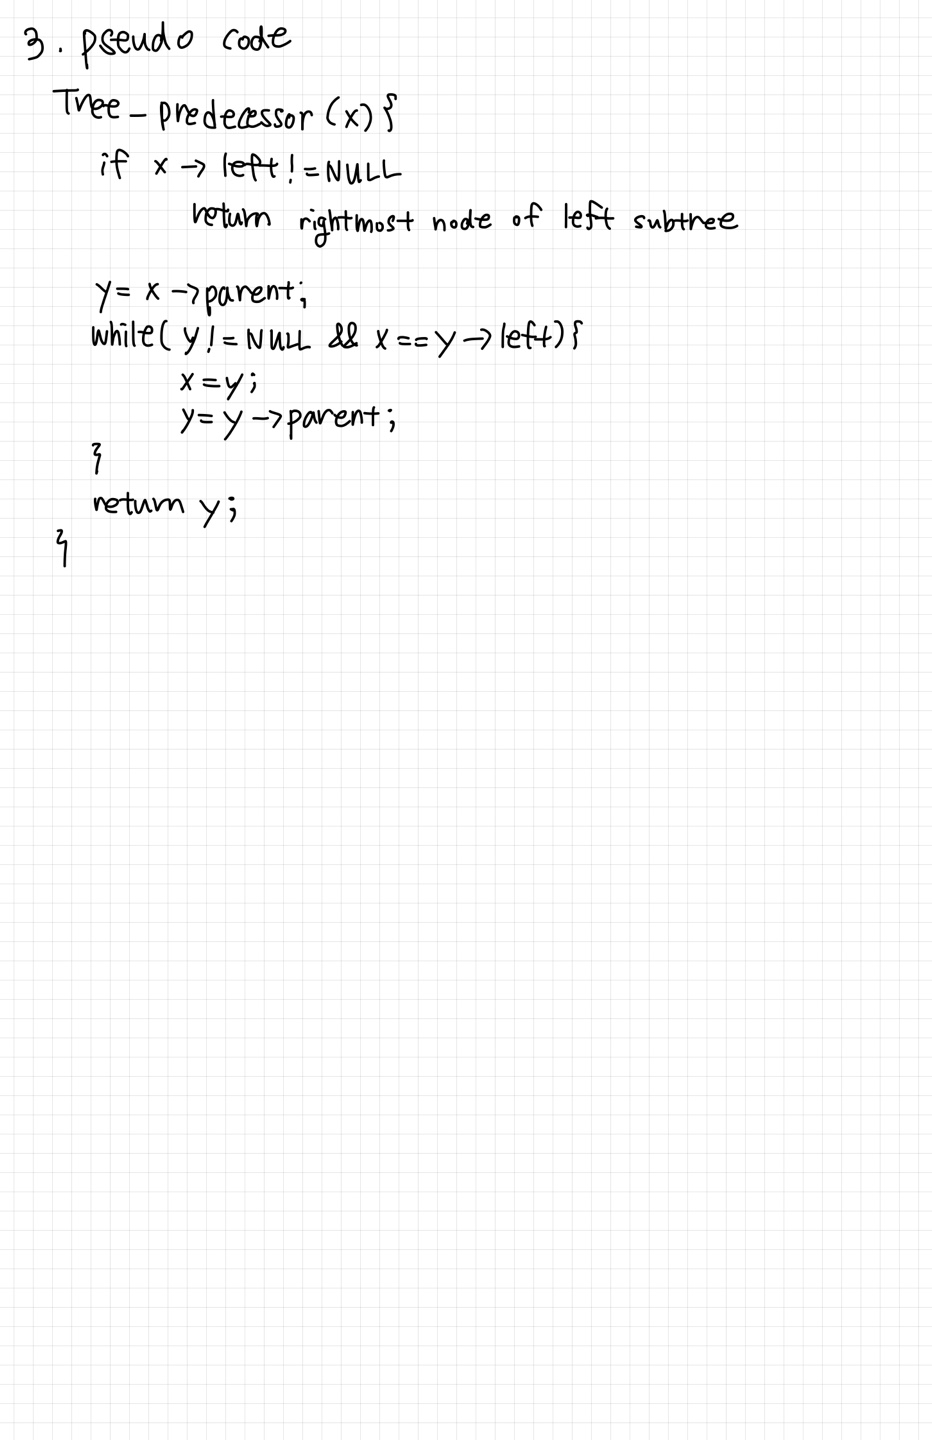 3. pseudo code
Tree-predecessor(x){
if x -> left != NULL
return rightmost node of left subtree
y = x -> parent;
while( y != NULL && x == y -> left){
x = y;
y = y -> parent;
}
return y;
}